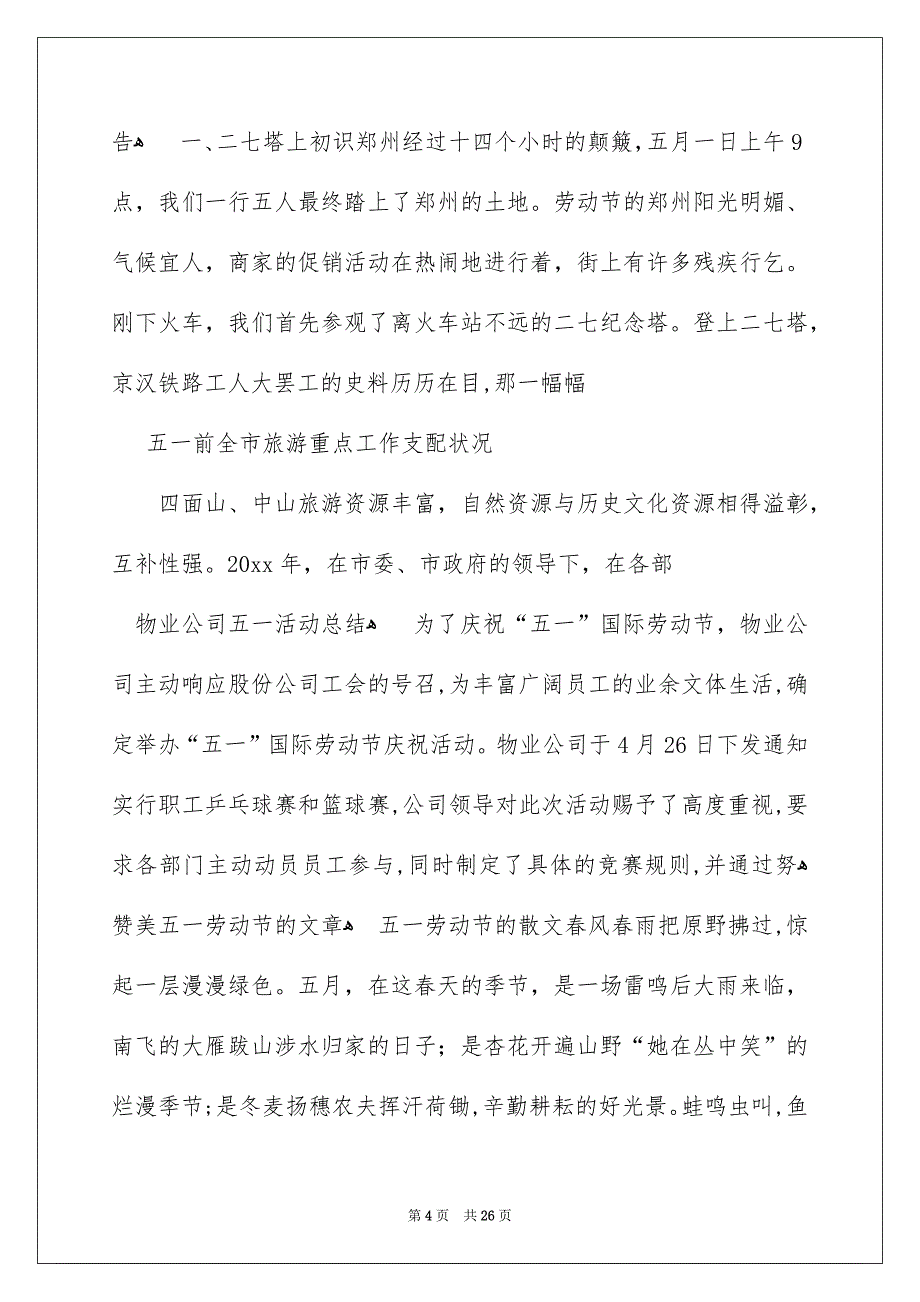 告ﻫ 一、二七塔上初识郑州经过十四个小时的颠簸,五月一日上午 9
点，我们一行五人最终踏上了郑州的土地。劳动节的郑州阳光明媚、
气候宜人，商家的促销活动在热闹地进行着，街上有许多残疾行乞。
刚下火车，我们首先参观了离火车站不远的二七纪念塔。登上二七塔,
京汉铁路工人大罢工的史料历历在目,那一幅幅
五一前全市旅游重点工作支配状况
四面山、中山旅游资源丰富，自然资源与历史文化资源相得溢彰,
互补性强。20xx 年，在市委、市政府的领导下，在各部
物业公司五一活动总结ﻫ 为了庆祝“五一”国际劳动节，物业公
司主动响应股份公司工会的号召,为丰富广阔员工的业余文体生活,确
定举办“五一”国际劳动节庆祝活动。物业公司于 4 月 26 日下发通知
实行职工乒乓球赛和篮球赛,公司领导对此次活动赐予了高度重视,要
求各部门主动动员员工参与,同时制定了具体的竞赛规则,并通过努ﻫ
赞美五一劳动节的文章ﻫ 五一劳动节的散文春风春雨把原野拂过,惊
起一层漫漫绿色。五月，在这春天的季节，是一场雷鸣后大雨来临，
南飞的大雁跋山涉水归家的日子；是杏花开遍山野“她在丛中笑”的
烂漫季节;是冬麦扬穗农夫挥汗荷锄,辛勤耕耘的好光景。蛙鸣虫叫,鱼
第 4 页 共 26 页